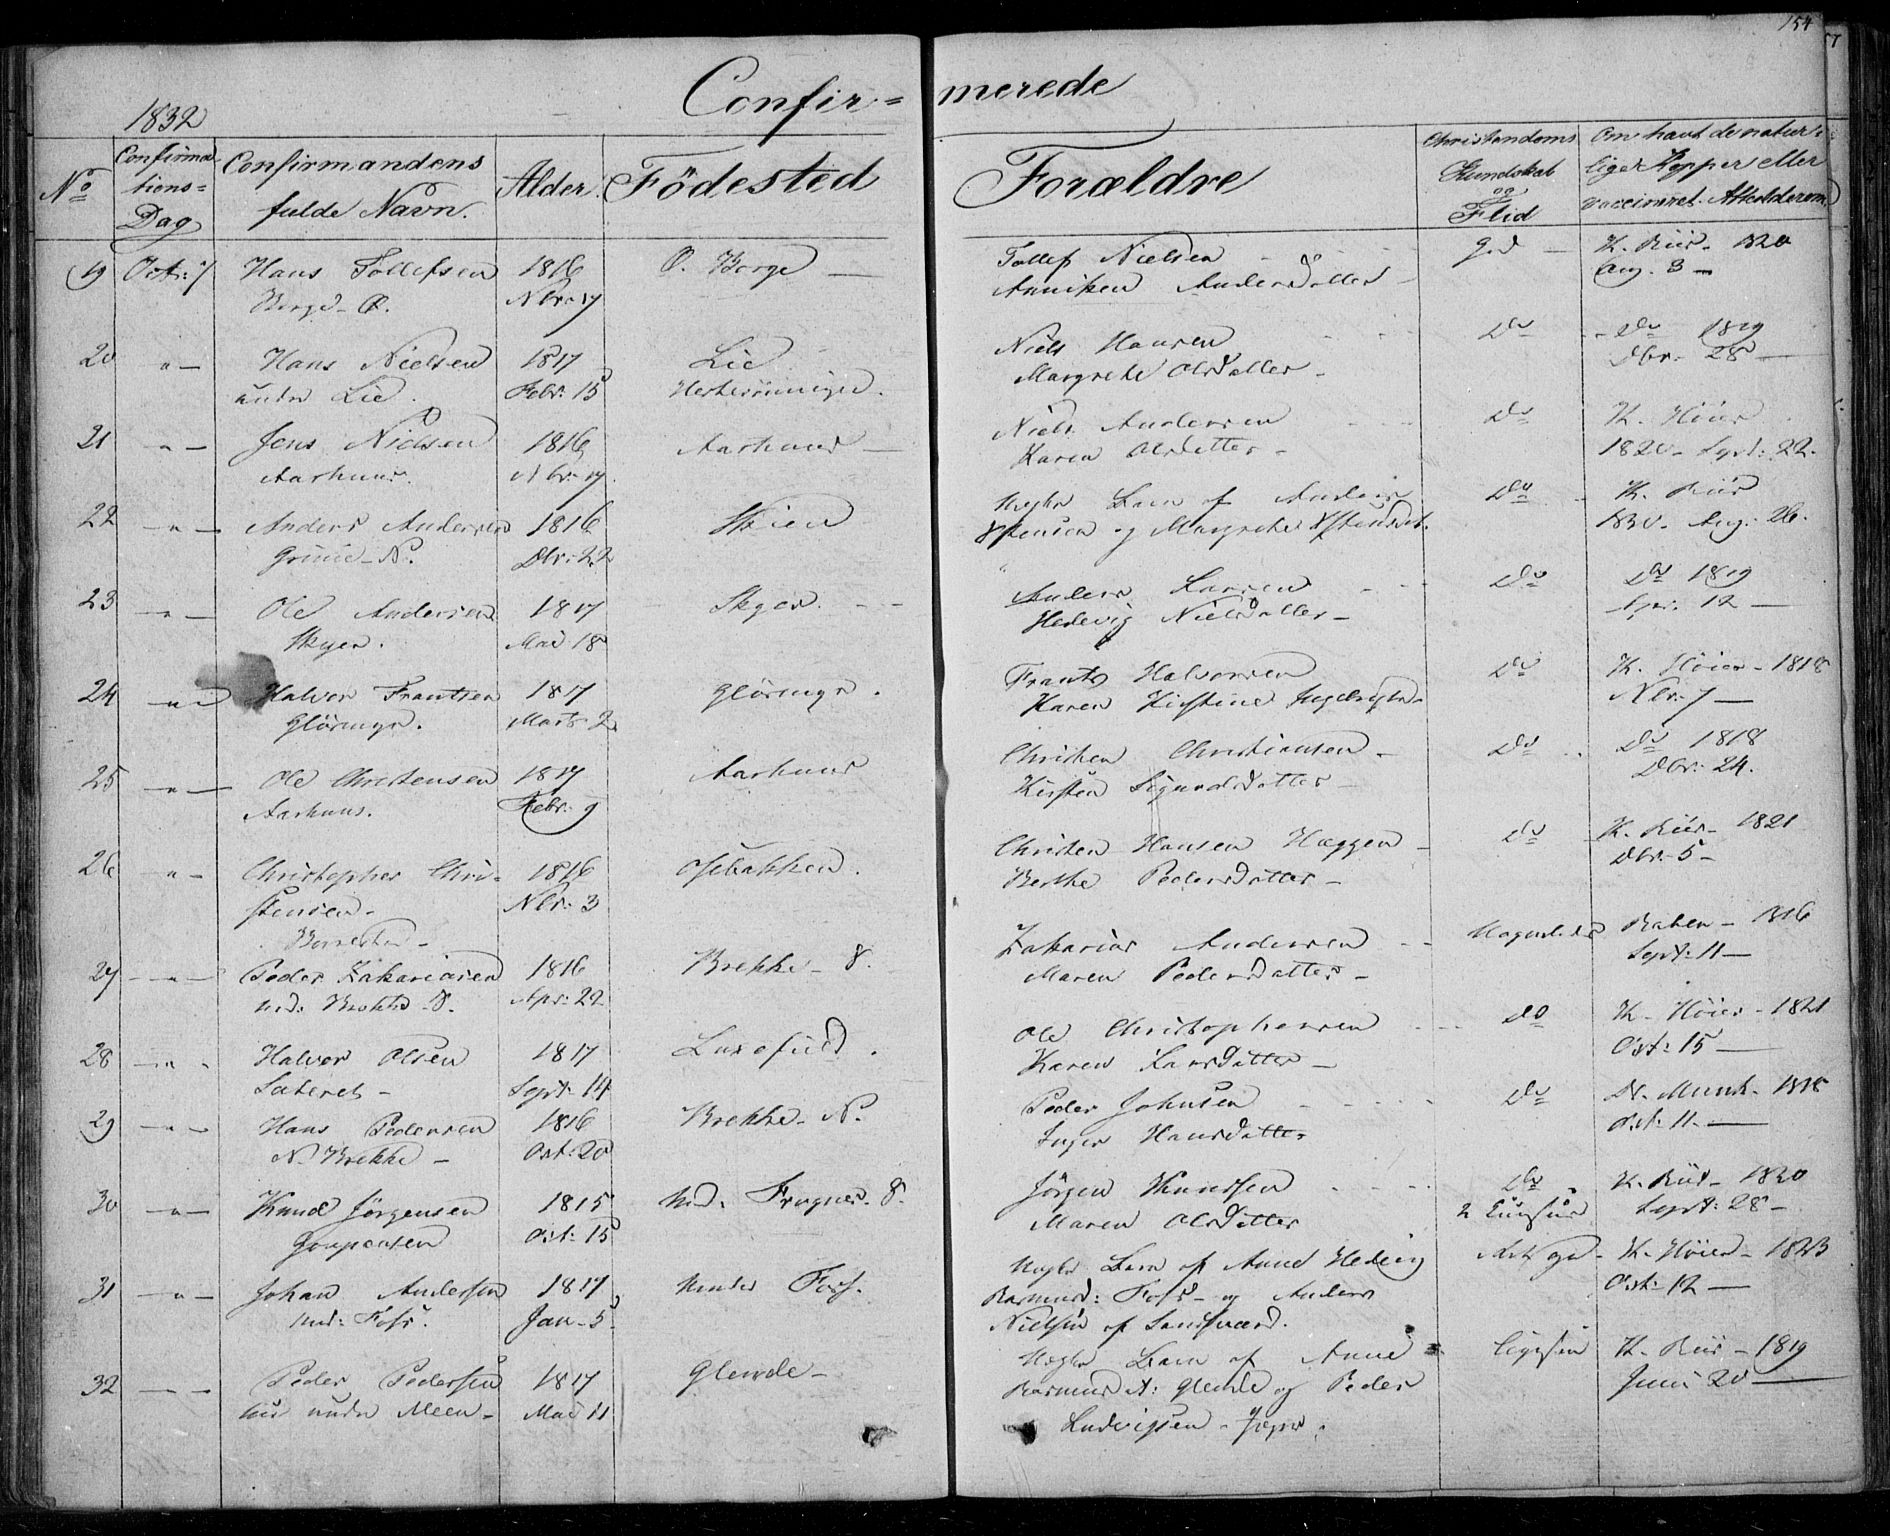 154
1832
Confir-merede
No
Confirmations-Dag
Confirmandens fulde Navn.
Alder.
Födested
Forældre
Christendoms Kundskab og Flid
Om havt de naturlige Kopper eller vaccineret. Attest derom.
19 Octr: 7 Hans Tollefsen 1816 O. Borge Tollef Nielsen God K. Riis 1820
Borge O. Nbr: 17 Anniken Andersdatter Aug. 3
20 " Hans Nielsen 1817 Lie Niels Hansen Do Do 1819
under Lie. Febr: 15 Margrethe Olsdatter Dbr. 28
21 " Jens Nielsen 1816 Aarhuus Niels Andersen Do K. Höier
Aarhuus. Nbr: 17. Karen Olsdatter 1820 Sept: 22.
22 " Anders Andersen 1816 Skien Uegte Barn af Anders Do K. Riis
N. Dbr: 22 og Margrethe Aug: 26.
23 " Ole Andersen 1817 Skyer. Anders Larsen Do Do 1819
Skyer. Mai 18 Hedevig Nielsdatter Apr: 12
24 " Halvor Frantsen 1817 Glöringn. Frants Halvorsen Do K. Höier 1818
Glöringn. Marts 2. Karen Kirstine Nbr: 7
25 " Ole Christensen 1817 Aarhuus Christen Christiansen Do Do 1818
Aarhuus. Febr: 9 Kirsten Sigurdsdatter Dbr: 24.
26 " Christopher Chri- 1816 Osebakken. Christen Hansen Haggen Do K. Riis 1821
stensen Nbr: 3 Berthe Pedersdatter Dbr: 5
27 " Peder Zakariasen 1816 Brekke S. Zakarias Andersen Raben 1816
und: Brekke S. Apr: 22 Maren Pedersdatter Sept: 11
28 " Halvor Olsen 1817 Ole Christophersen Do K. Höier 1821
Sept: 14 Karen Larsdatter Oct: 15
29 " Hans Pedersen 1816 Brekke N. Peder Johnsen Do Dr. Munk 1818
N. Brekke Oct: 20 Inger Hansdatter Oct: 11.
30 " Knud Jörgensen 1815 und: Frogner S. Jörgen Knudsen Do K. Riis
Oct: 15 Maren Olsdatter 2 Sept: 28
31 " Johan Andersen 1817 under Foss. Uegte Barn af Anne Hedevig K. Höier
und: Foss. Jan. 5. Rasmusd: Foss og Anders Oct: 12
Nielsen af Sandsværd.
32 " Peder Pedersen 1817 Glende Uegte Barn af Anne K. Riis 1819
under Meen Mai 11 Rasmusdt: Glende og Peder Juni 20
Ludvigsen